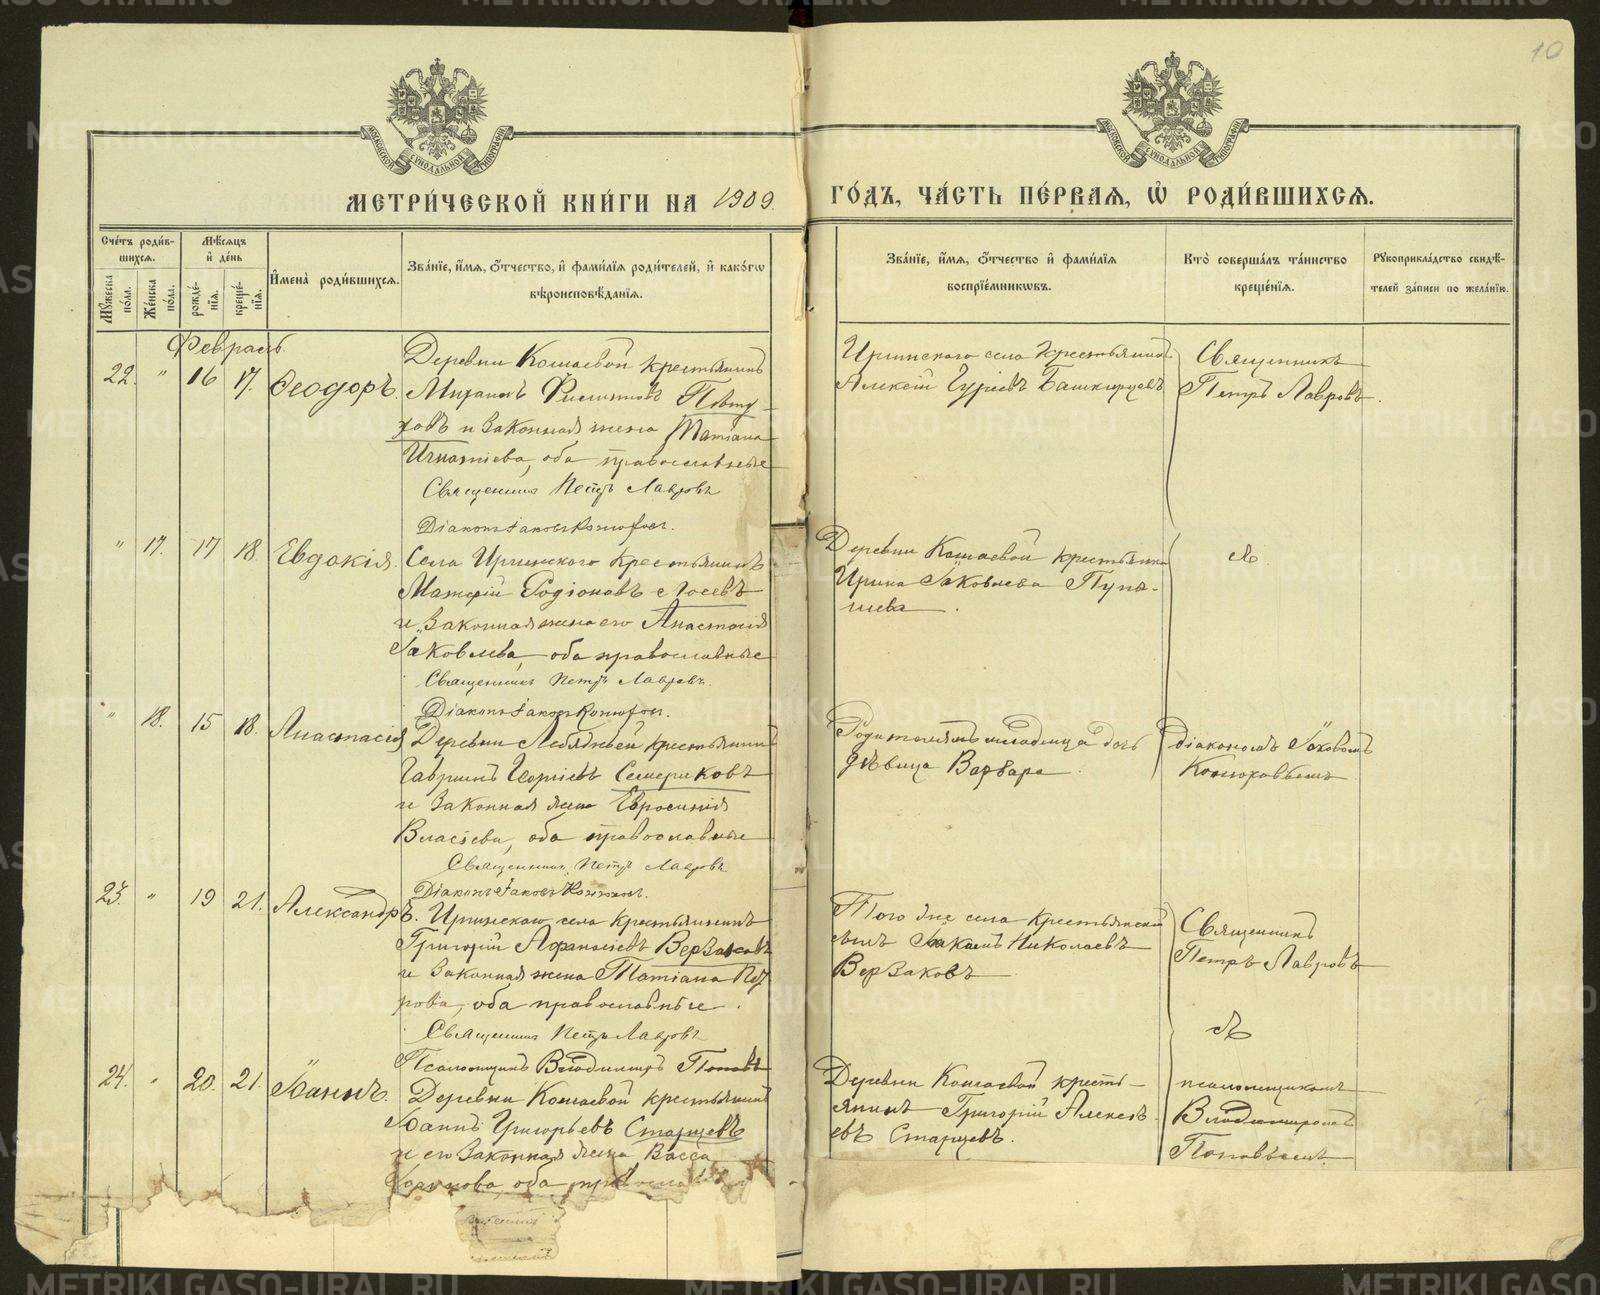 10
МОСКОВСКОЙ СѴНОДАЛЬНОЙ ТИПОГРАФІИ
МОСКОВСКОЙ СѴНОДАЛЬНОЙ ТИПОГРАФІИ
МЕТРИ́ЧЕСКОЙ КНИ́ГИ НА 1909.
ГО́ДЪ, ЧА́СТЬ ПЕ́РВАЯ, Ѽ РОДИ́ВШИХСЯ.
Сче́тъ роди́в-
шихся.
Мꙋ́жеска по́ла.
Же́нска по́ла.
Мѣ́сяцъ
и҆ де́нь
рожде́-
нїѧ.
креще́-
нїѧ.
И҆мена̀ роди́вшихся.
Зва́нїе, и҆́мѧ, ѻ҆́тчество, и҆ фами́лїѧ роди́телей, и҆ како́гѡ
вѣроисповѣ́данїѧ.
Зва́нїе, и҆́мѧ, ѻ҆́тчество и҆ фами́лїѧ
воспрїе́мникѡвъ.
Кто̀ соверша́лъ та́инство
креще́нїѧ.
Рꙋкоприкла́дство свидѣ́-
телей за́писи по жела́нїю.
Февраль.
22. " 16 17. Ѳеодоръ.
Деревни Кошаевой крестьянинъ
Миранъ Филиповъ Пѣту-
ховъ и законная жена Татіана
Игнатіева, оба православные
Священникъ Петръ Лавровъ
Діаконъ Іаковъ Конюховъ.
Иринскаго села крестьянинъ
Алексій Гуріевъ Башкирцевъ
Священникъ
Петръ Лавровъ.
" 17. 17 18 Евдокія.
Села Иргинскаго крестьянинъ
Матѳій Родіоновъ Лосевъ
и законная жена его Анастасія
Іаковлева, оба православные
Священникъ Петръ Лавровъ.
Діаконъ Іаковъ Конюховъ.
Деревни Кошаевой крестьянка
Ирина Іаковлева Пупы-
шева.
" 18. 15 18. Анастасія
Деревни Лебяжьей крестьянинъ
Гавріилъ Георгіевъ Семериковъ
и законная жена Евросинія
Власіева, оба православные
Священникъ Петръ Лавровъ
Діаконъ Іаковъ Конюховъ.
Родителямъ младенца дочь
дѣвица Варвара.
діакономъ Іаковомъ
Конюховымъ
23. " 19 21. Александръ.
Иргинскаго села крестьянинъ
Григорій Аѳанасіевъ Верзаковъ
и законная жена Татіана Пет
рова, оба православные.
Священникъ Петръ Лавровъ
Псаломщикъ Владимиръ Поповъ
Того же села крестьянскій
сынъ Іоакимъ Николаевъ
Верзаковъ
Священникъ
Петръ Лавровъ
24. " 20. 21. Іоаннъ.
Деревни Кошаевой крестьянинъ
Іоаннъ Григорьевъ Старцевъ
и его законная жена Васса
оба
Деревни Кошаевой кресть-
янинъ Григорій Алексѣ-
евъ Старцевъ.
псаломщикомъ
Владимиромъ
Поповымъ.